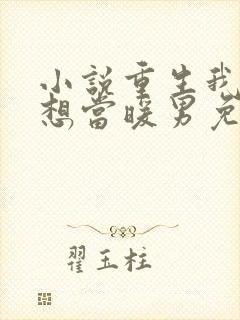 小說重生我
想當暖男免
翟玉柱